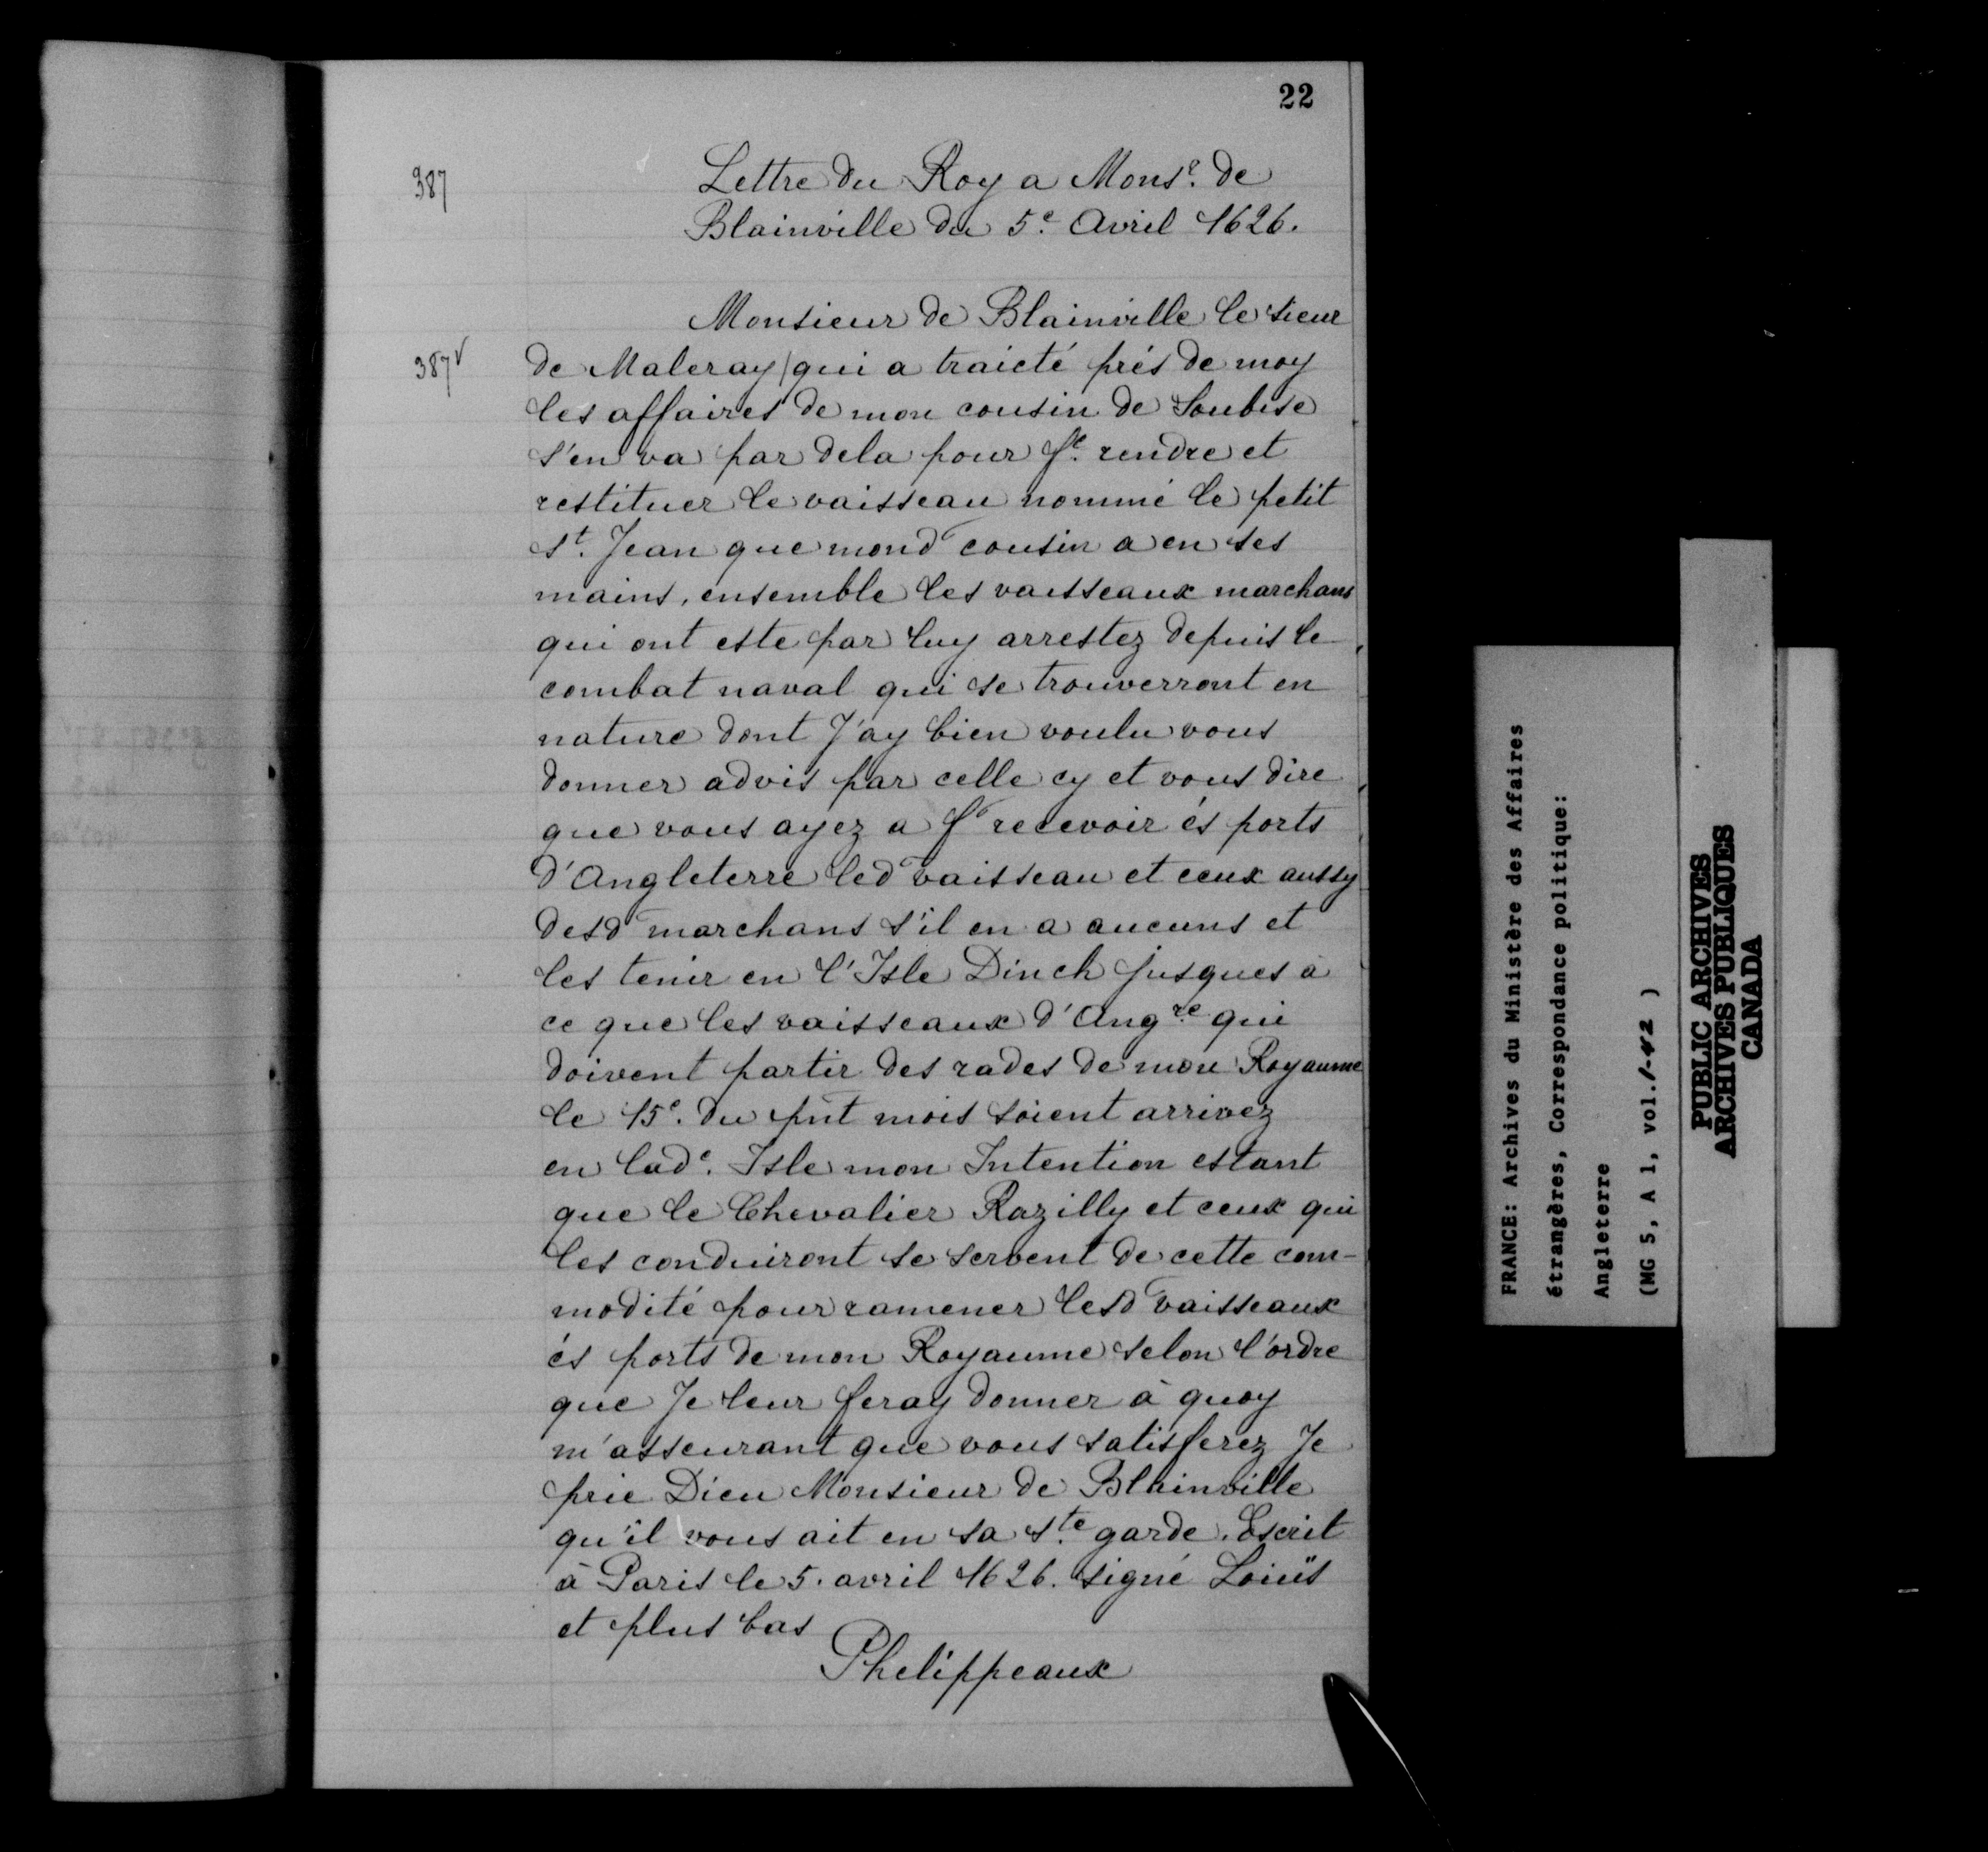 22
387
Lettre du Roy a Monsr. de
Blainville du 5e. Avril 1626.
Monsieur de Blainville le sieur
387v
de Maleray/qui a traicté prés de moy
les affaires de mon cousin de Soubise
s'en va par dela pour fe. rendre et
restituer le vaisseau nommé le petit
St. Jean que mond cousin a en ses
mains, ensemble les vaisseaux marchans
qui ont este par luy arrestez depuis le
combat naval qui se trouverront en
nature dont J'ay bien voulu vous
donner advis par celle cy et vous dire
que vous ayez a fe recevoir és ports
d'Angleterre led vaisseau et ceux aussy
desd marchans s'il en a aucuns et
les tenir en l'Isle Dinch jusques à
ce que les vaisseaux d'Angre. qui
doivent partir des rades de mon Royaume
le 15e. du pnt mois soient arrivez
en lade. Isle mon Intention estant
que le Chevalier Razilly et ceux qui
les conduiront se servent de cette com-
modité pour ramener lesd vaisseaux
és ports de mon Royaume selon l'ordre
que Je leur feray donner à quoy
m'asseurant que vous satisferez Je
prie Dieu Monsieur de Blainville
qu'il vous ait en sa Ste. garde. Escrit
à Paris le 5. avril 1626. signé Loüis
et plus bas
Phelippeaux
FRANCE: Archives du Ministère des Affaires
étrangères, Correspondance politique:
Angleterre
(MG 5, A 1, vol. 1-42 )
PUBLIC ARCHIVES
ARCHIVES PUBLIQUES
CANADA